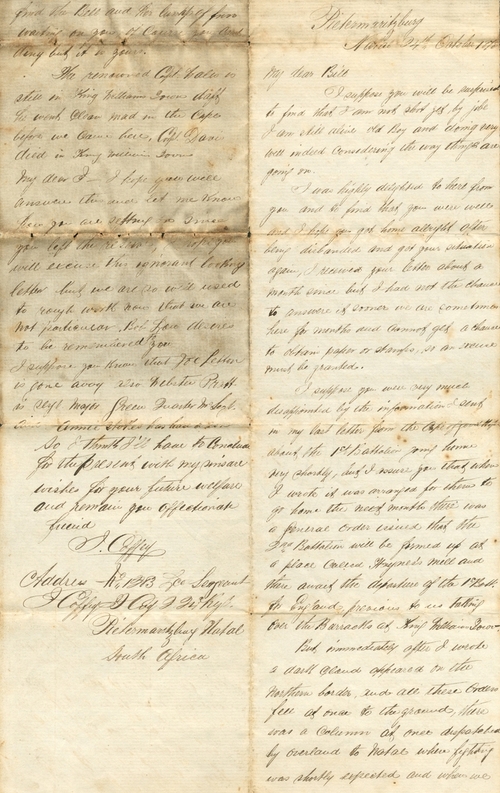 Pietermaritzburg
24th October 187
My dear Bill
I suppose you will be surprised
to find that I am not shot yet by jobe
I am still alive old boy and doing very
well indeed considering the way things are
going on.
I was highly delighted to hear from
you and to find that you were well
and I hope you got home allright after
being disbanded and got your situation
again, I received your letter about a
month since but I had not the chance
to answer it sooner we are sometimes
here for months and cannot get a chance
to obtain paper or stamps, so an excuse
must be granted.
I suppose you were very much
disappointed by the information I sent
in my last letter from the Cape
about the 1st Battalion going home
very shortly, but I assure you that when
I wrote it was arranged for them to
go home the next month there was
a general order issued that the
2nd Battalion will be formed up at
a place called Haynes's mill and
there await the departure of the 1st Batt.
for England previous to us taking
over the Barracks at King William Town
But immediately after I wrote
a dark cloud appeared on the
Northern border, and all these orders
fell at once to the ground, there
was a Column at once dispatched
by overland to Natal where fighting
was shortly expected and when we
find the Bill and
waiting on you of Course you
deny but it is yours.
The renowned Capt
still in King William Town
he went Clean mad in the Cape
before we came here, Capt
died in King William Town
My dear I hope you will
answer this and let me know
how you are getting on since
you left the
will excuse this ignorant looking
letter but we are so well used
to rough work now that we are
not particular, desires
to be remembered to you
I suppose you know that Joe
is gone away also Webster Pratt
is Sergt Major Green Quarter Mr Sergt.
So I think I'll have to Conclude
for the present with my sincere
wishes for your future welfare
and remain you affectionate
friend
J. Coffey
Address - Sergeant
J Coffey
Pietermaritzburg Natal
South Africa